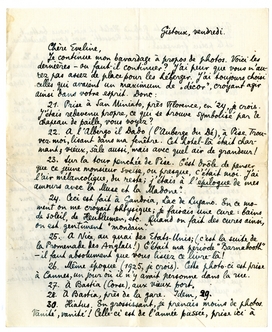 Gistoux, vendredi.
Chère Eveline,
Je continue mon bavardage à propos de photos. Voici les
dernières - ou faut-il continuer? J'ai peur que vous n'au-
rez pas assez de place pour les héberger. J'ai toujours choisi
celles qui avaient un maximum de "décor", croyant agir
ainsi dans votre esprit. Donc:
21. Prise à San Miniato, près Florence, en 24, je crois.
J'étais redevenu propre, ce qui se trouve symbolisé par le
chapeau de paille, vous voyez?
22. A l'Albergo il Dado (l'Auberge du Dé), à Pise. Trou-
vez-moi, lisant dans ma fenêtre. Cet hôtel-là était char-
mant, vieux, sale aussi, mais quel air de grandeur!
23. Sur la tour penchée de Pise. C'est drôle de penser
que ce jeune monsieur svelte, ou presque, c'était moi. J'ai
l'air mélancolique, du reste; j'étais à l'épilogue de mes
amours avec la Muse et la Madone.
24. Ceci est fait à Gandria, Lac de Lugano. En ce mo-
ment on me croyait phtisique; je faisais une cure: bains
de soleil, de et Quand on fait des cures ainsi,
on est gentiment "mondain".
25. A Nice, au quai des Etats-Unis; (c'est la suite de
la Promenade des Anglais!) C'était ma période "Barnabooth"
- il faut absolument que vous lisiez ce livre-là!
26. Même époque (1925, je crois). Cette photo-ci est prise
à Cannes, un jour où il n'y avait personne dans la rue.
27. A Bastia (Corse), aux vieux port.
28. A Bastia, près de la gare. Idem, 29.
30. En grossissant, je prenais moins de photos.
Vanité, vanité! Celle-ci est de l'année passée, prise ici à